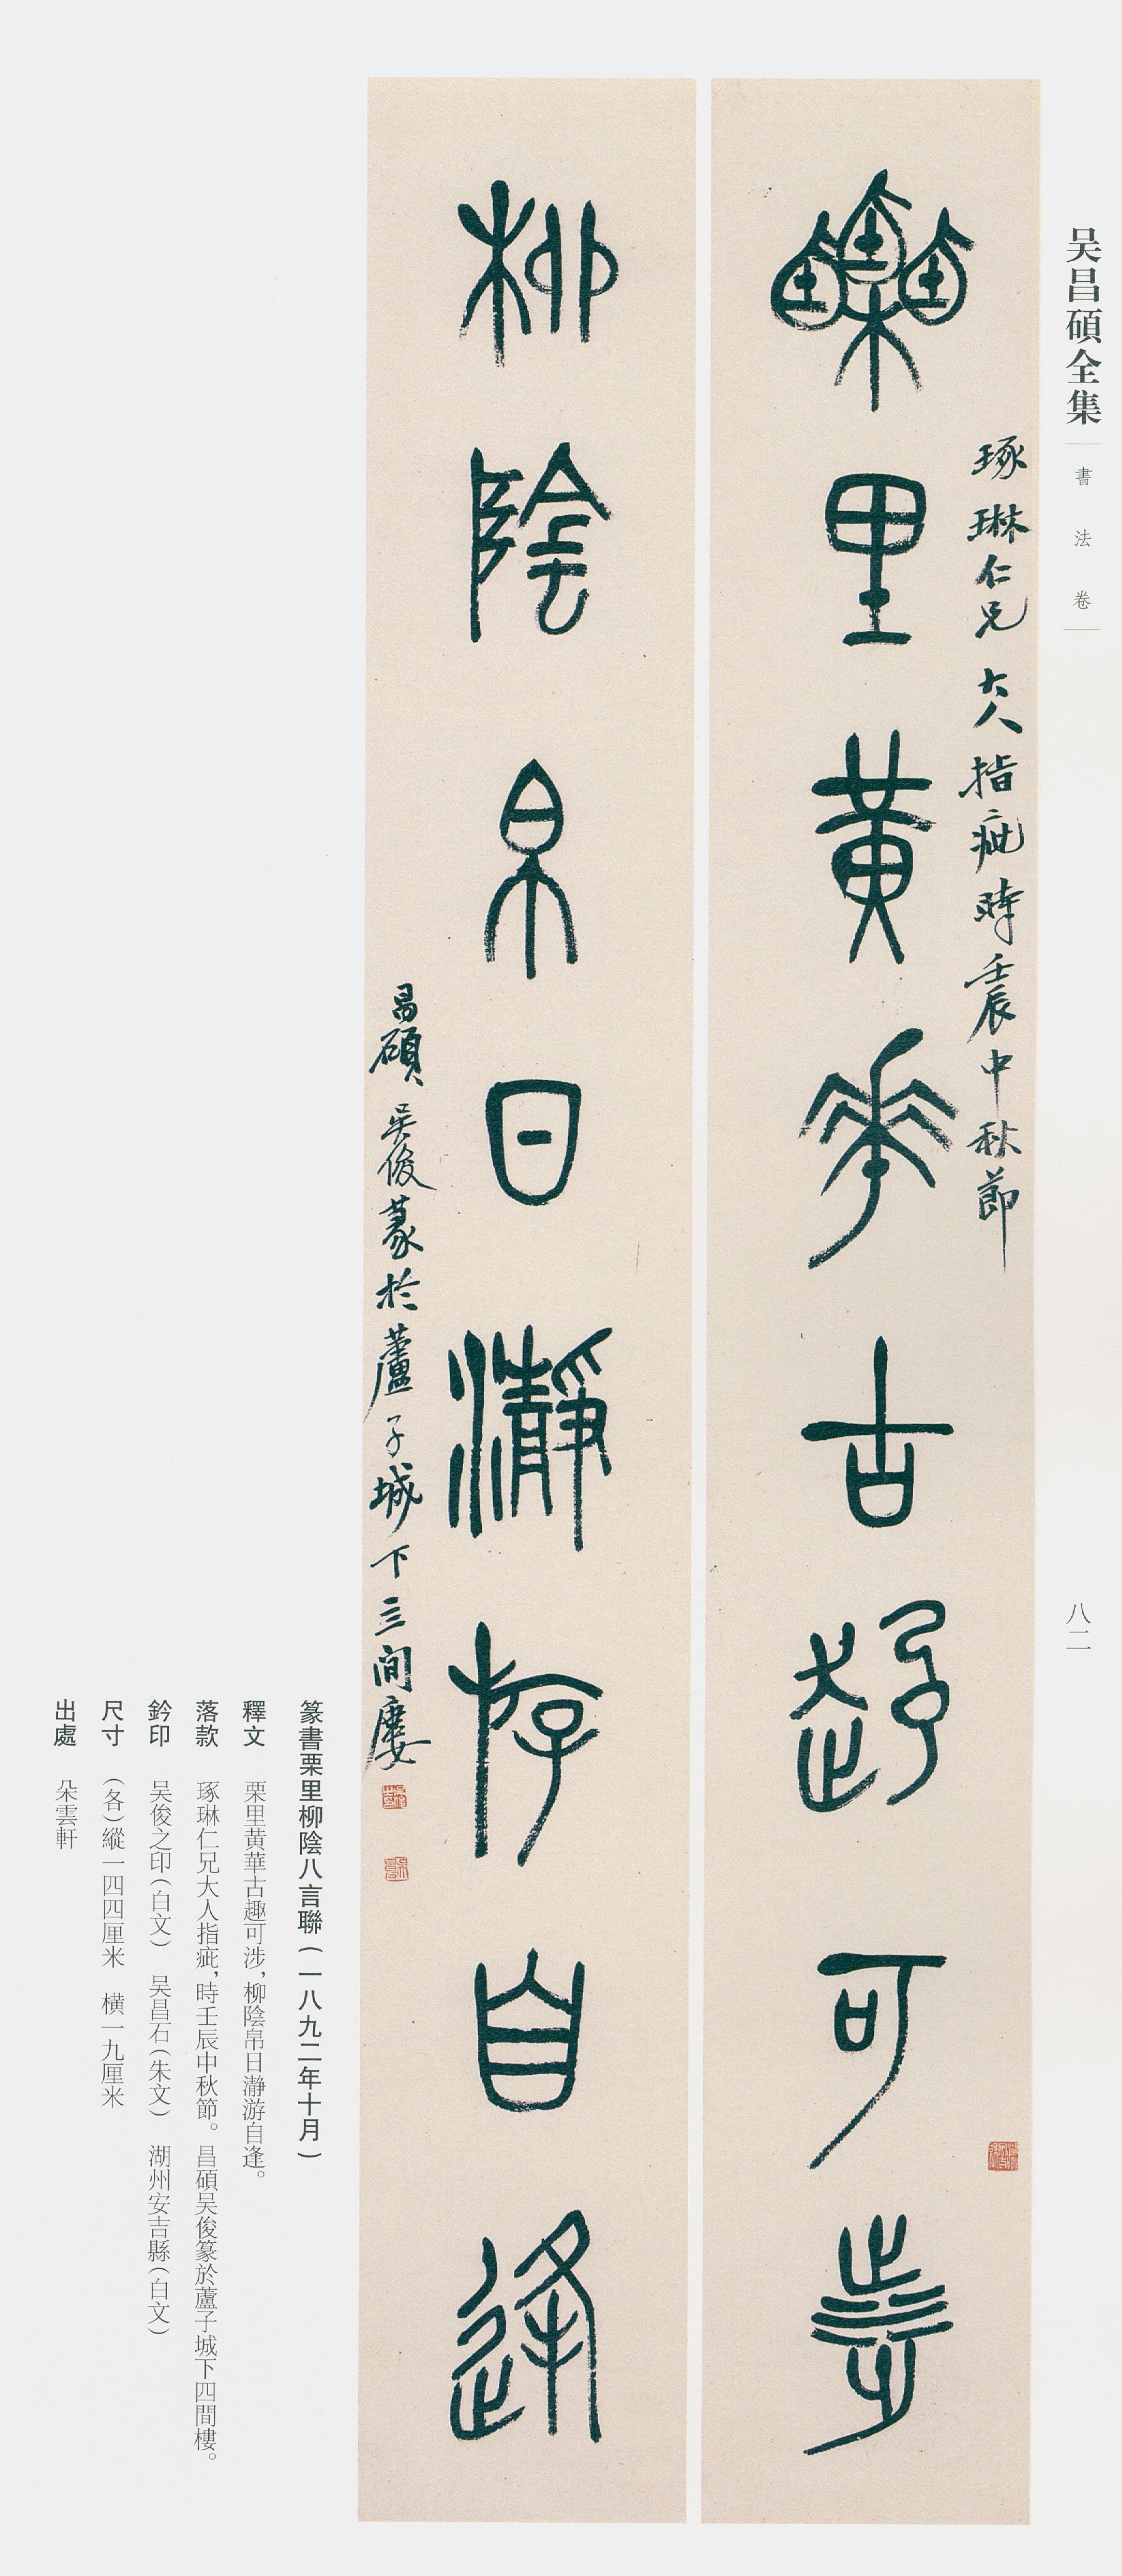 吴昌碩全集
書法卷
八二
琢琳仁兄大人指疵時壬辰中秋節
栗里黄華古趣可涉
柳陰帛日瀞游自逢
昌碩吴俊篆於蘆子城下三間廔
篆書栗里柳陰八言聯（一八九二年十月）
釋文 栗里黄華古趣可涉，柳陰帛日瀞游自逢。
落款 琢琳仁兄大人指疵，時壬辰中秋節。昌碩吴俊篆於蘆子城下四間樓。
鈐印 吴俊之印（白文） 吴昌石（朱文） 湖州安吉縣（白文）
尺寸 （各）縱一四四厘米 橫一九厘米
出處 朵雲軒